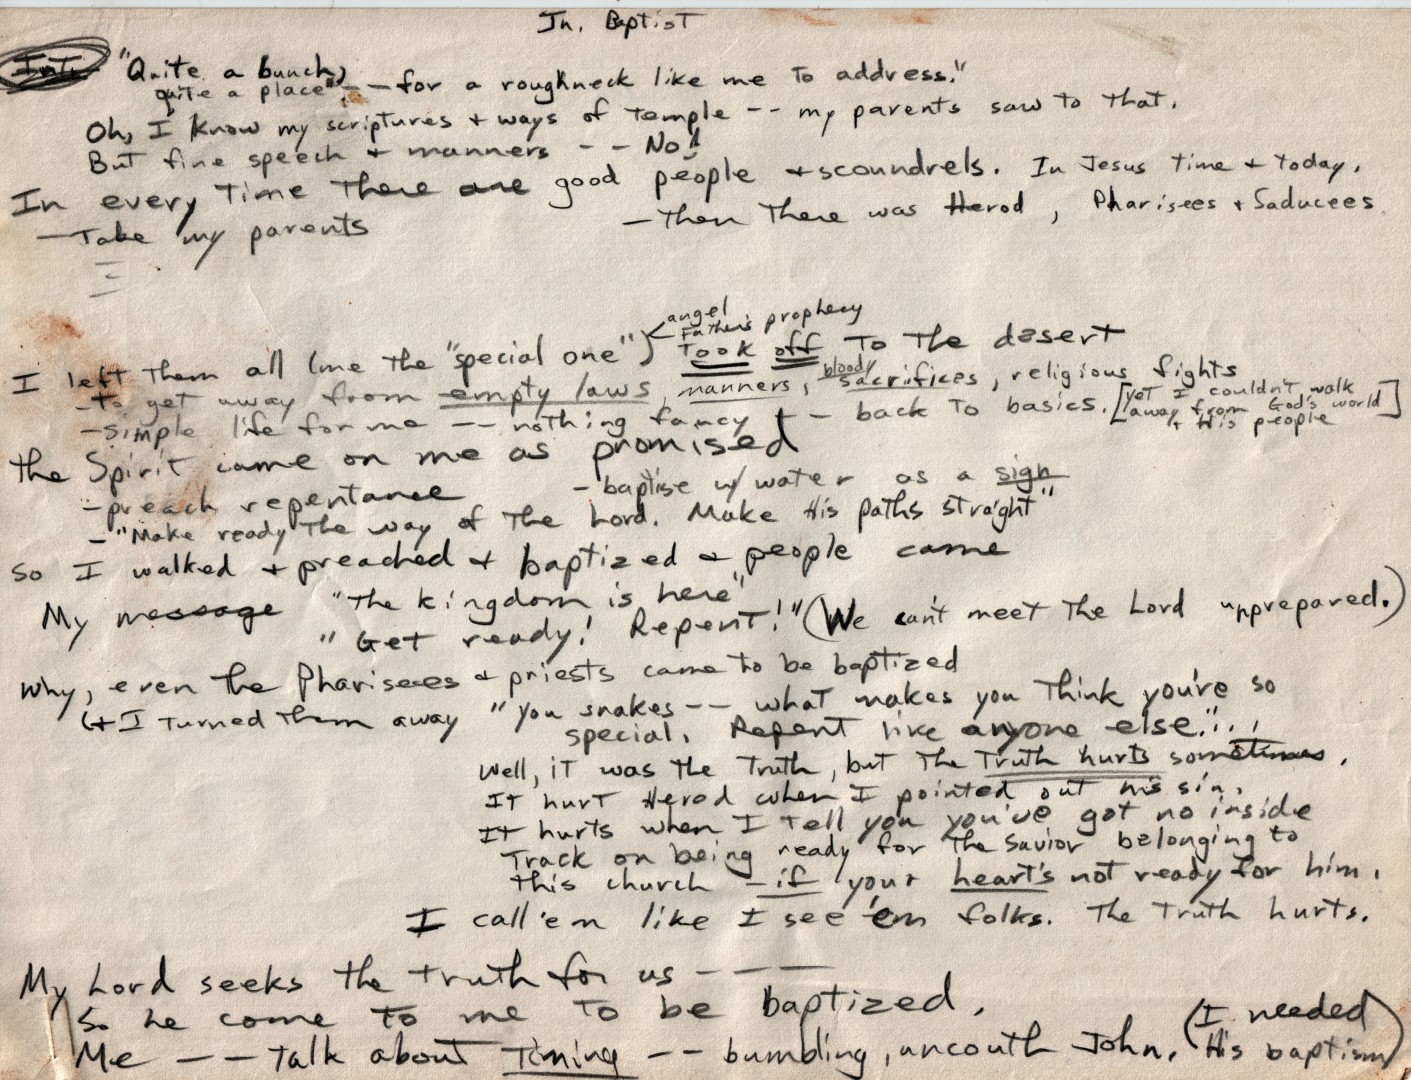 Jn. Baptist
Int. "Quite a bunch,
quite a place" -- for a roughneck like me to address."
Oh, I know my scriptures + ways of temple -- my parents saw to that.
But fine speech + manners -- No!
In every time there are good people + scoundrels. In Jesus time + today.
- Take my parents - Then there was Herod, Pharisees + Saducees
angel
Father's prophecy
I left them all (me the "special one") Took off to the desert
- to get away from empty laws, manners, bloody sacrifices, religious fights
- simple life for me -- nothing fancy - back to basics. [yet I couldn't walk
away from God's world
+ His people]
the Spirit came on me as promised
- preach repentance - baptise w/ water as a sign
- "Make ready the way of the Lord. Make His paths straight"
So I walked + preached + baptized + people came
My message "The kingdom is here"
"Get ready! Repent!" (We can't meet the Lord unprepared.)
Why, even the Pharisees + priests came to be baptized
(+ I turned them away "you snakes -- what makes you think you're so
special. Repent like anyone else."...
Well, it was the truth, but the truth hurts sometimes.
It hurt Herod when I pointed out his sin.
It hurts when I tell you you've got no inside
track on being ready for the Savior belonging to
this church - if your heart's not ready for him.
I call 'em like I see 'em folks. The truth hurts.
My Lord seeks the truth for us ----
So he come to me to be baptized.
Me -- talk about timing -- bumbling, uncouth John. (I needed
His baptism)